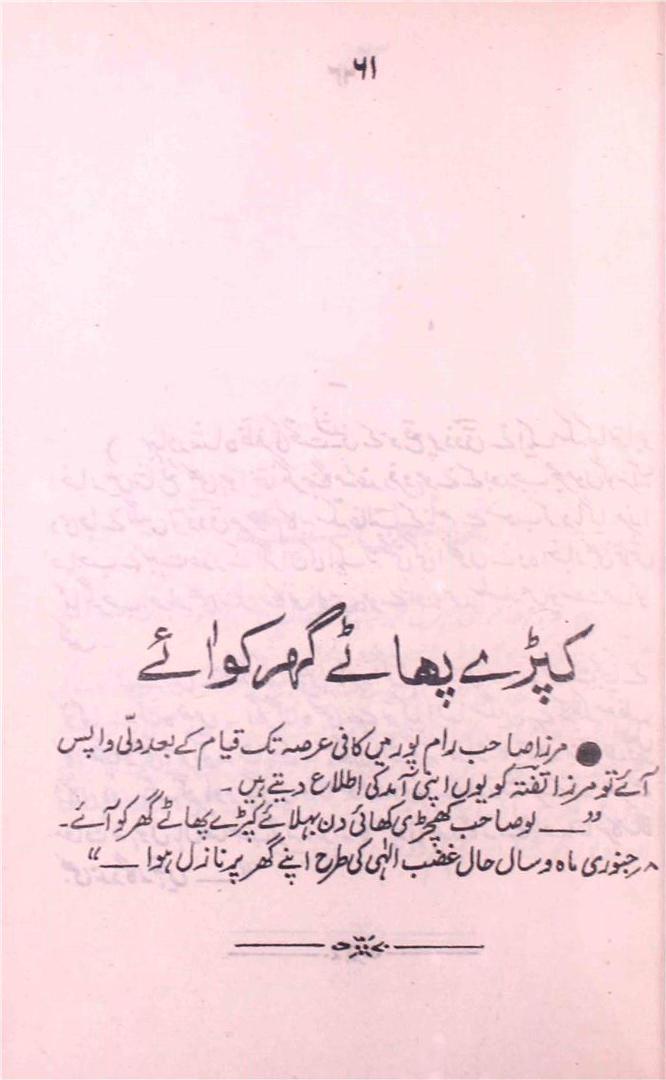 ۶۱
کپڑے پھاٹے گھر کو آئے
● مرزا صاحب رام پور میں کافی عرصہ تک قیام کے بعد دلّی واپس
آئے تو مرزا تفتہ کو یوں اپنی آمد کی اطلاع دیتے ہیں ۔
”—— لو صاحب کھچڑی کھائی دن بہلائے کپڑے پھاٹے گھر کو آئے۔
۸ر جنوری ماہ و سال حال غضب الٰہی کی طرح اپنے گھر پر نازل ہوا ——“